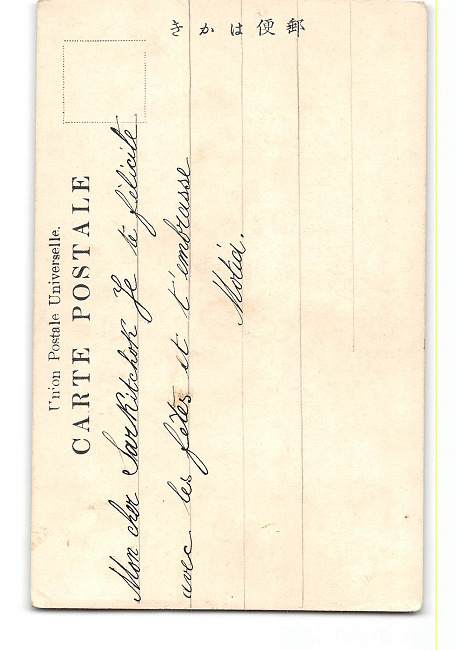 郵便はかき
Union Postale Universelle.
CARTE POSTALE
Mon cher Sarkitchok Je te félicite
avec les fêtes et t'embrasse
Motia.